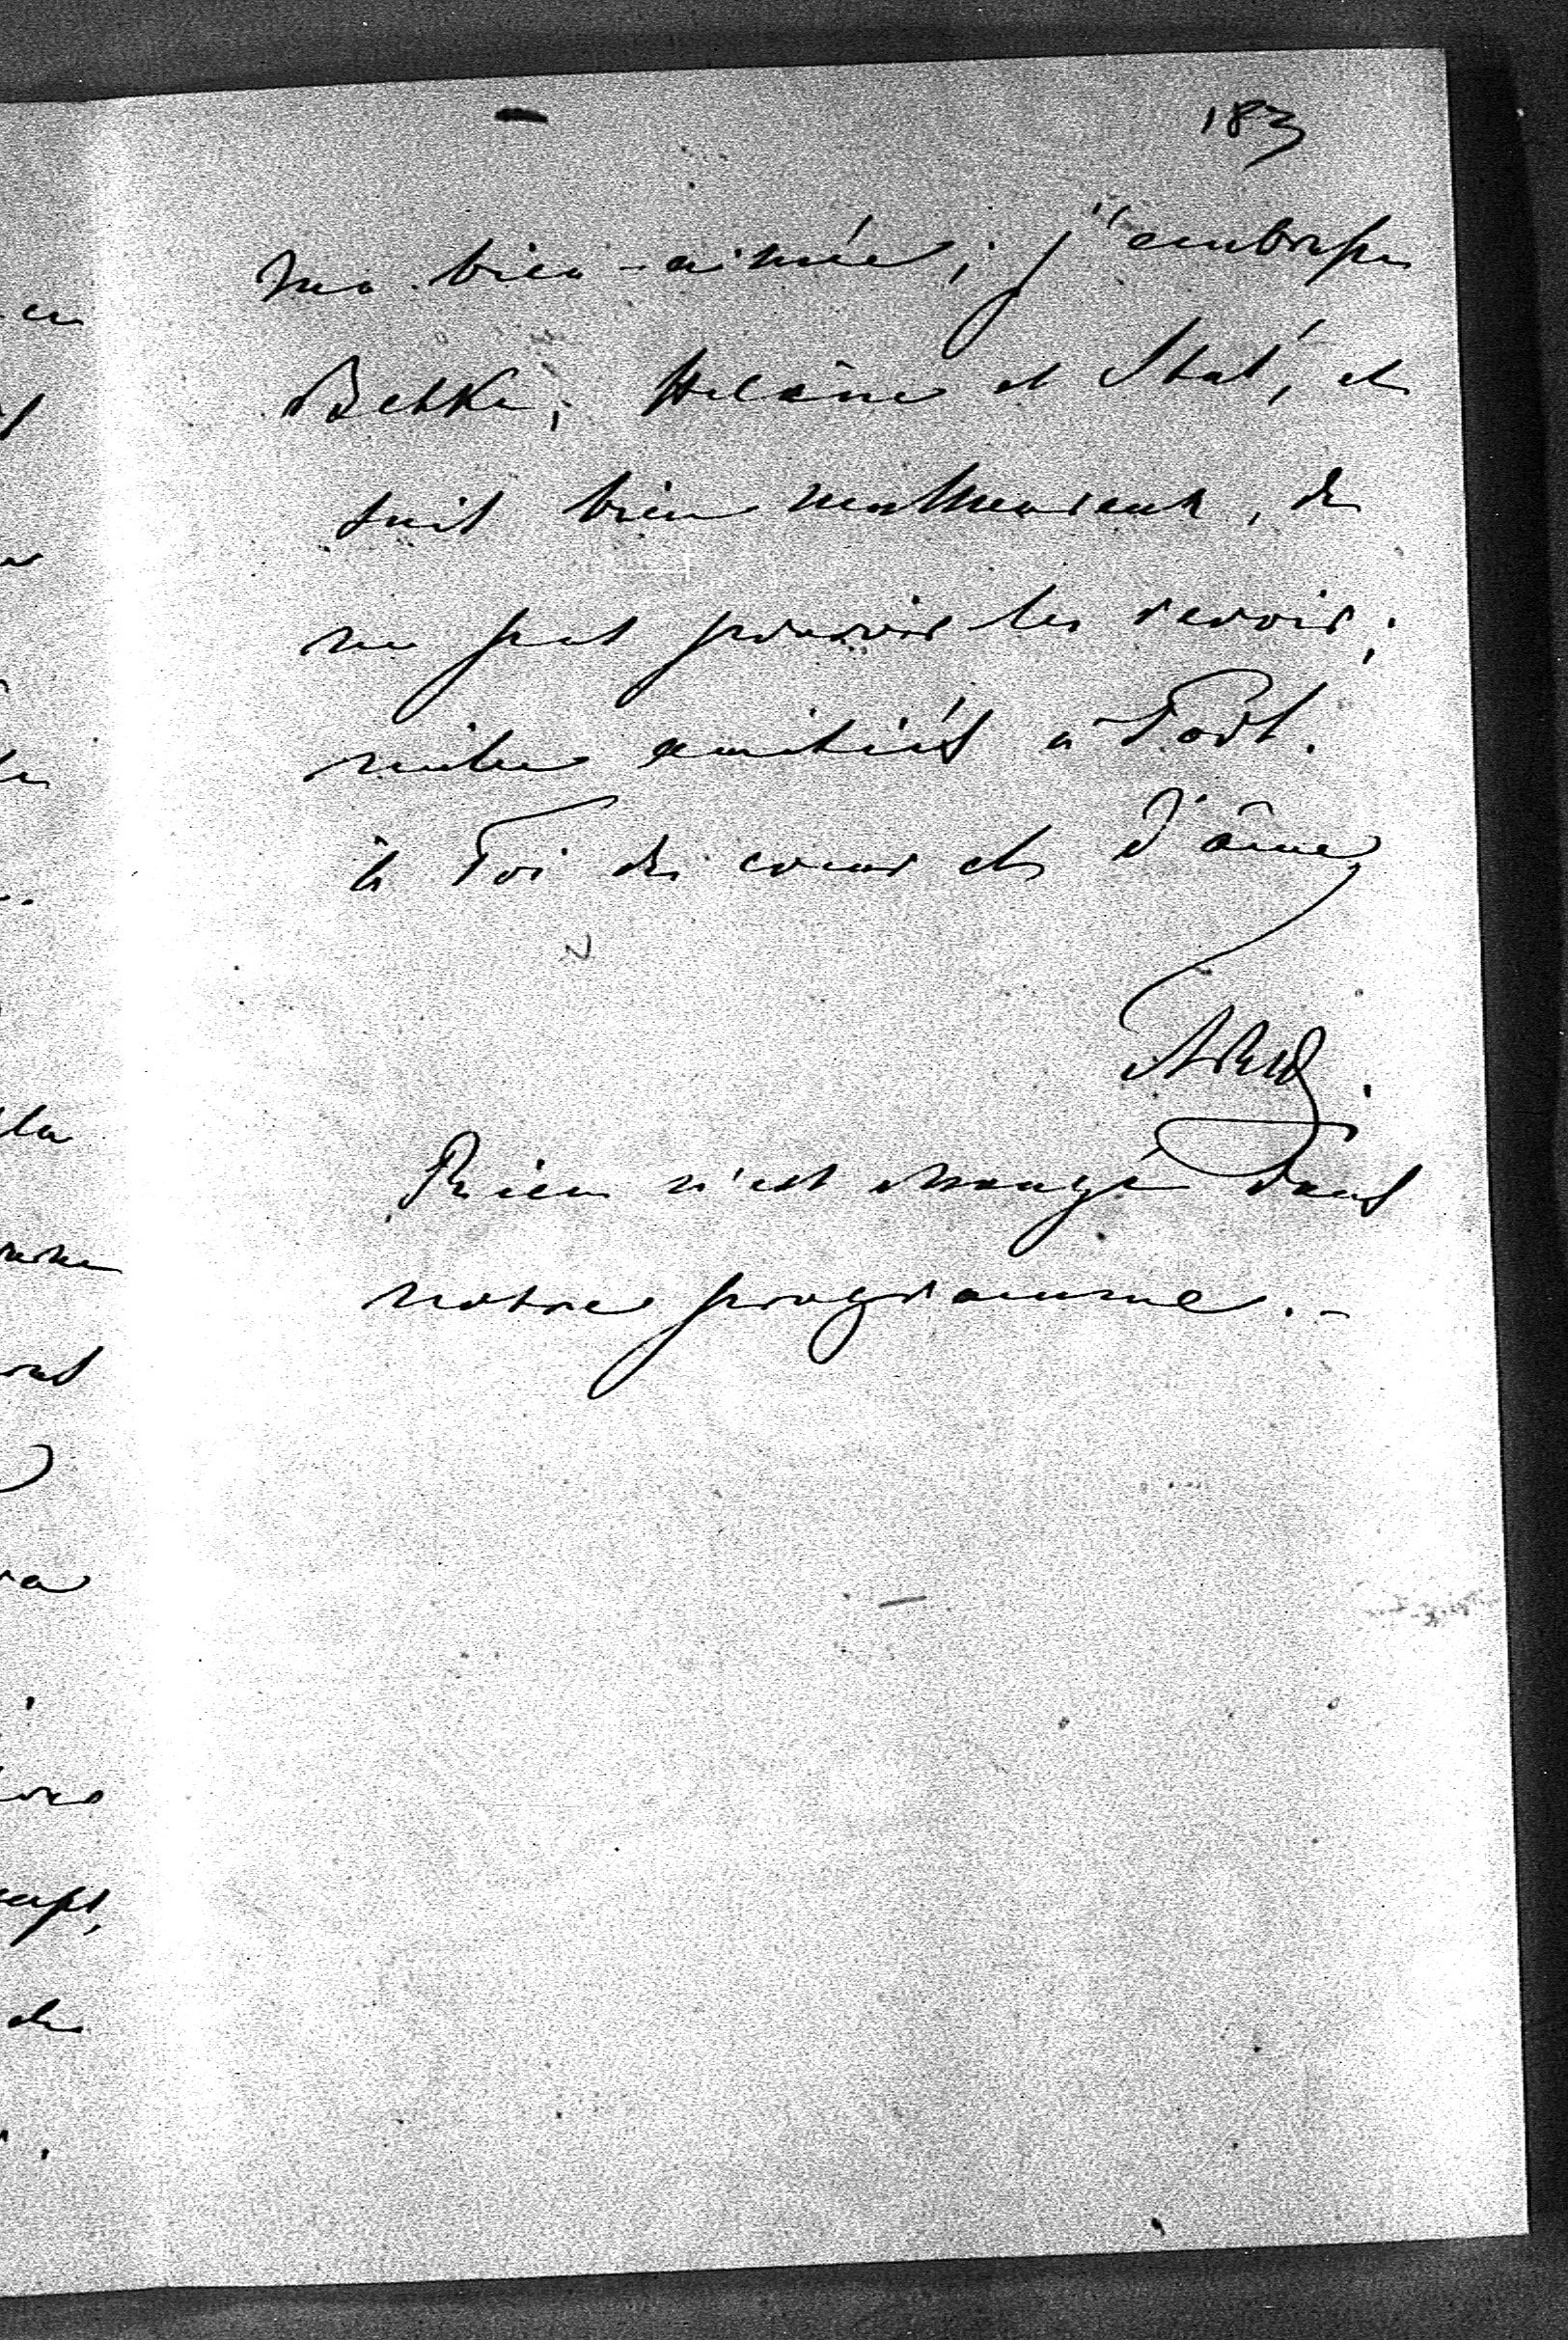 183
ma bien-aimée, j'embrasse
Betka, Hélène et Stas', et
suis bien malheureux, de
ne pas pouvoir les revoir;
milles amitiés à
à Toi de cœur et d'âme
Rien n'est changé dans
notre programme. -
la
de